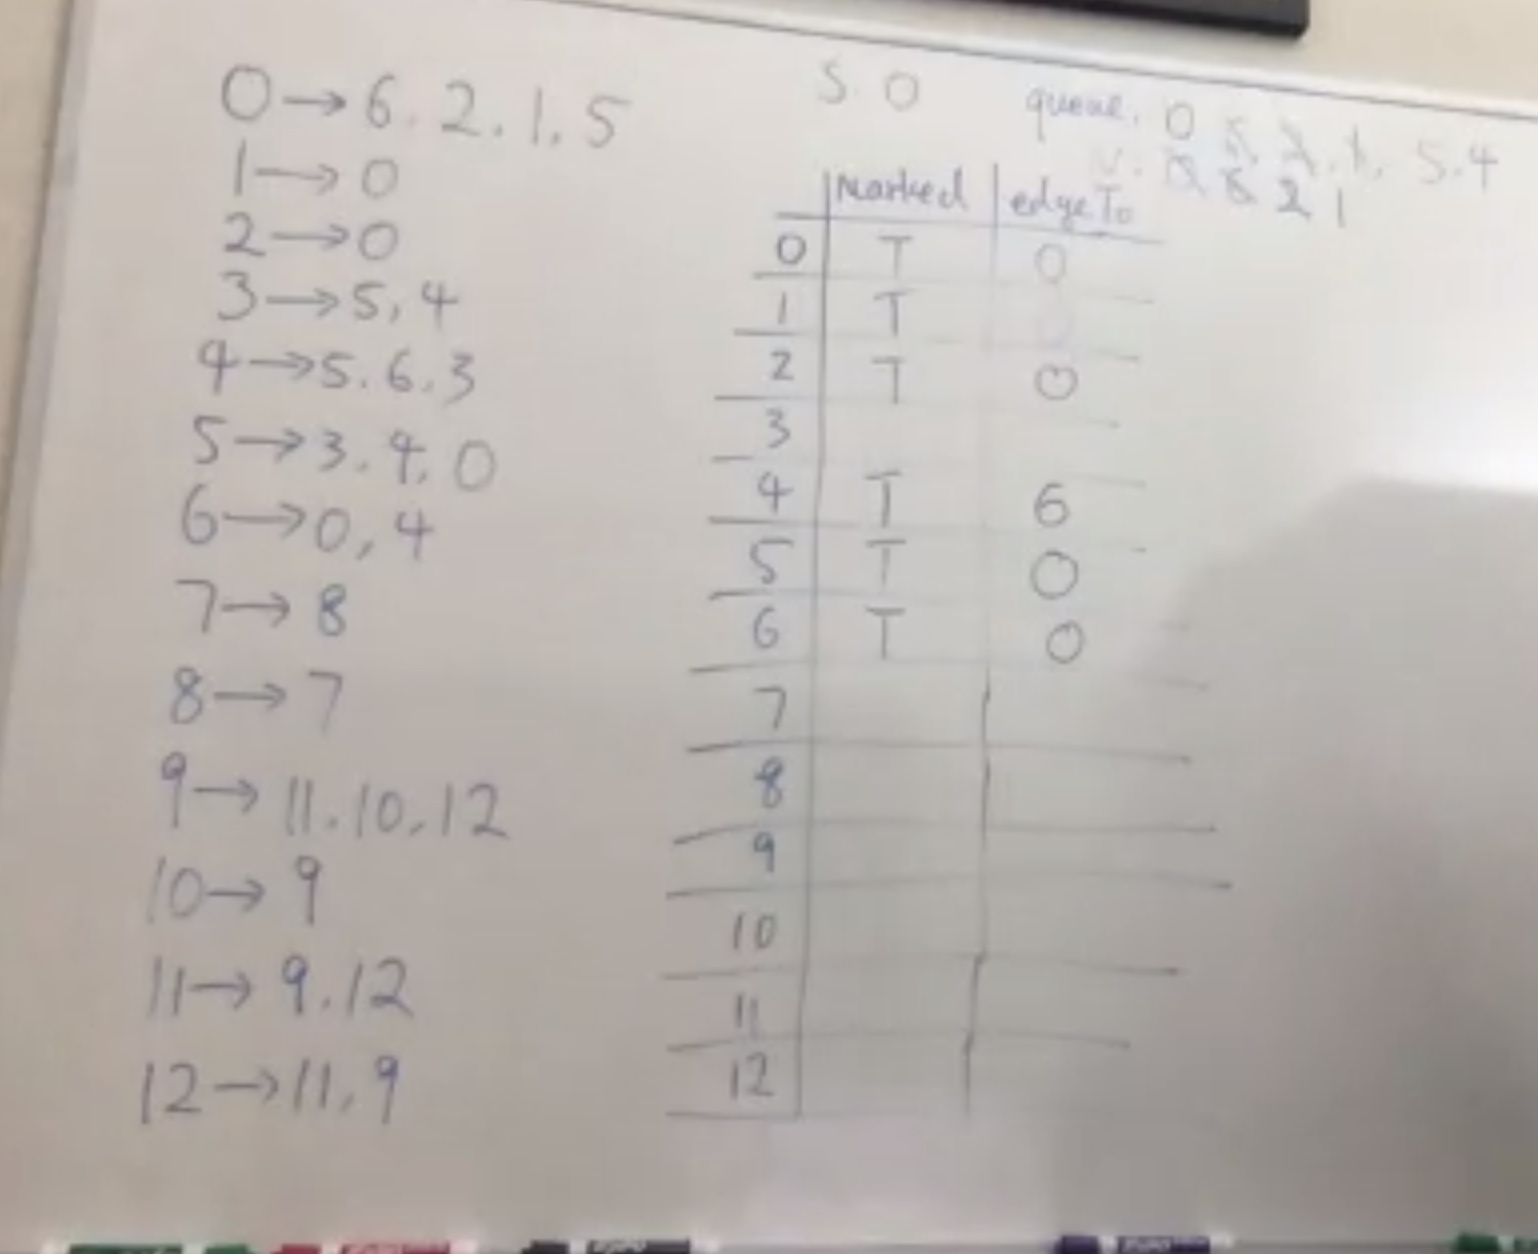 0→6.2.1.5
1→0
2→0
3→5,4
4→5.6.3
5→3.4.0
6→0,4
7→8
8→7
9→11.10.12
10→9
11→9.12
12→11,9
S. 0
queue. 0 6, 2, 1, 5.4
v. 0 6 2 1
marked edgeTo
0 T 0
1 T
2 T 0
3
4 T 6
5 T 0
6 T 0
7
8
9
10
11
12